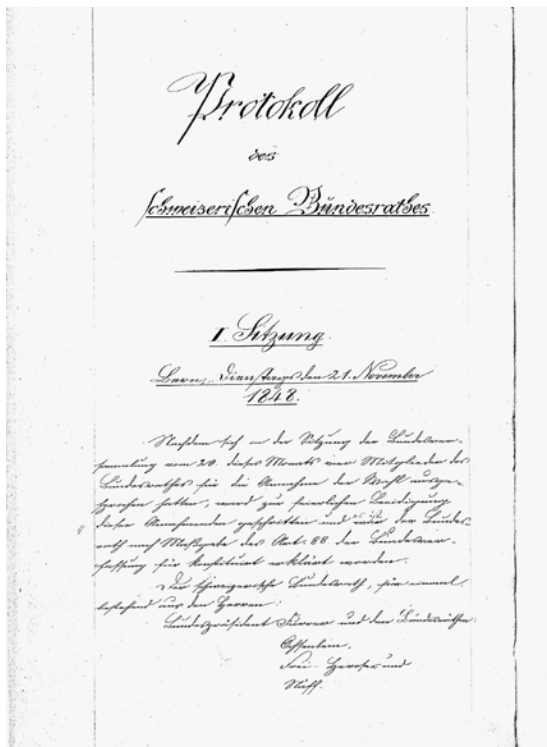 Protokoll
des
schweizerischen Bundesrathes
I. Sitzung.
Bern, Dienstags den 21. November
1848.
Nachdem sich in der Sitzung der Bundesver-
sammlung vom 20. dieses Monats vier Mitglieder des
Bundesrathes für die Annahme der Wahl ausge-
sprochen hatten, ward zur feierlichen Beeidigung
dieser Annehmenden geschritten und der Bundes-
rath nach Maßgabe des Art. 88 der Bundesver-
fassung für konstituirt erklärt worden.
Der schweizerische Bundesrath, für einmal
bestehend aus den Herren:
Bundespräsident Furrer und den Bundesräthen:
Ochsenbein,
Frei-Herosé und
Näff.